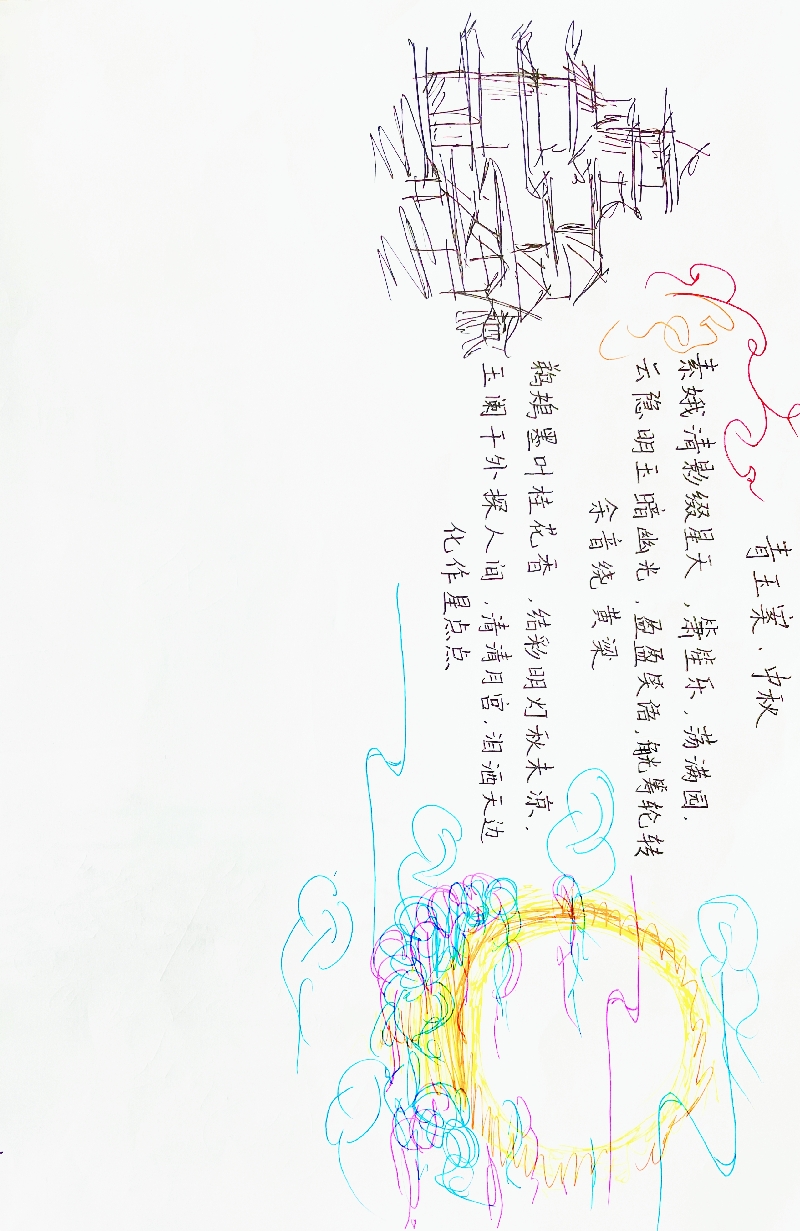 青玉案、中秋
素娥清影缀星天，箫笙乐，荡满园.
云隐明玉暗幽光，盈盈笑语，觥筹轮转
余音绕黄梁
鹈鴂墨叶桂花香，结彩明灯秋未凉、.
玉阑干外探人间，清清月宫，泪洒天边
化作星点点